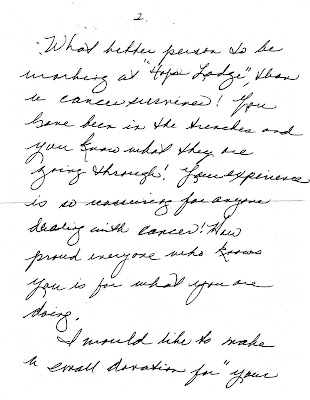 2.
What better person to be
working at "Hope Lodge", than
a cancer survivor! You
have been in the trenches and
you know what they are
going through! Your experience
is so reassuring for anyone
dealing with cancer! How
proud everyone who knows
you is for what you are
doing.
I would like to make
a small donation for "your